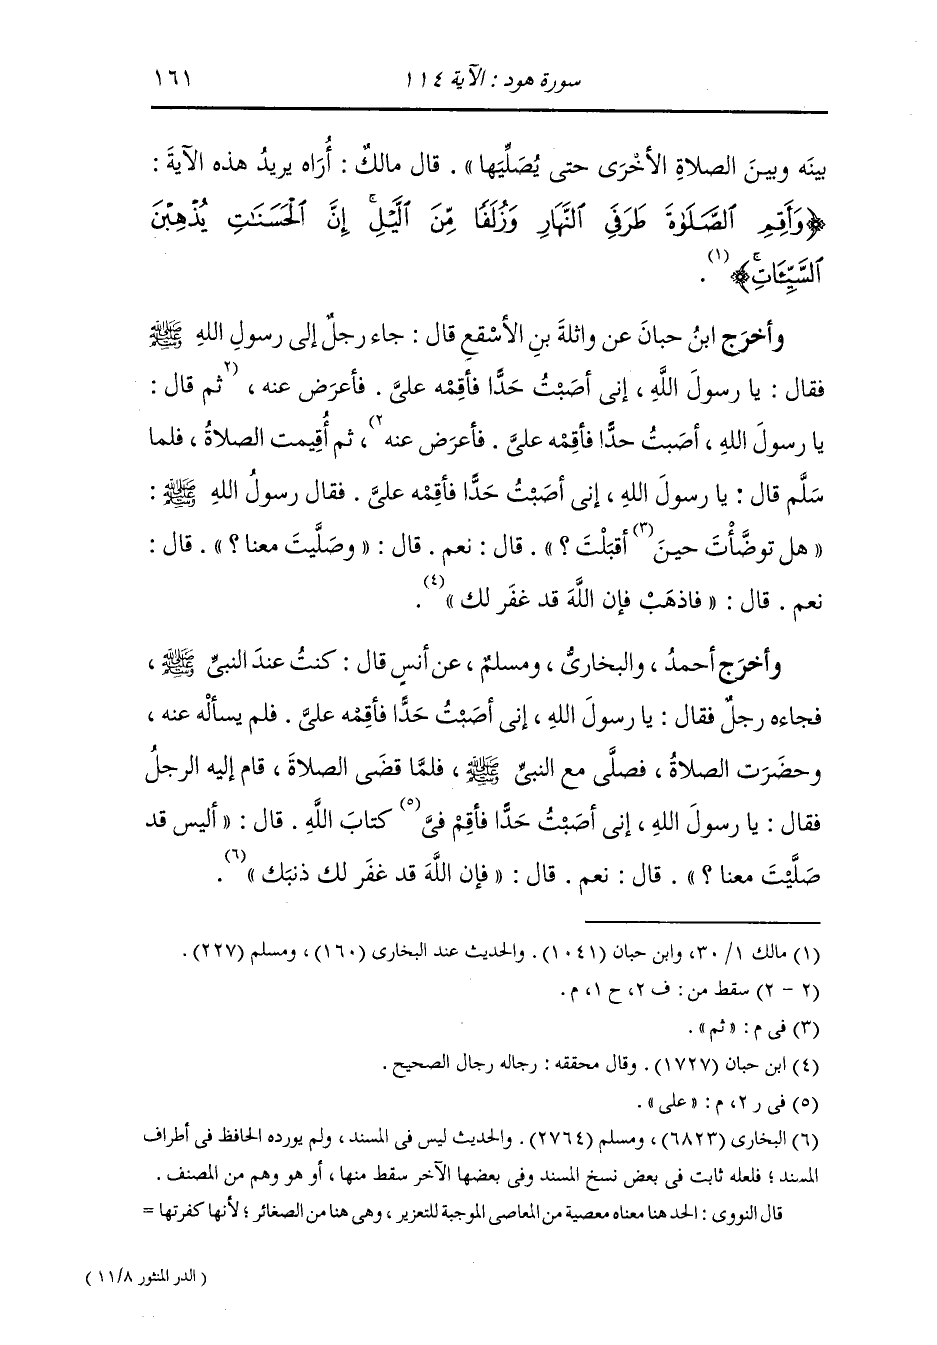 سورة هود : الآية ١١٤ ١٦١
بينَه وبينَ الصلاةِ الأخْرَى حتى يُصَلِّيَها » . قال مالكٌ : أُرَاه يريدُ هذه الآيةَ :
﴿وَأَقِمِ ٱلصَّلَوٰةَ طَرَفَيِ ٱلنَّهَارِ وَزُلَفًا مِّنَ ٱلَّيْلِۚ إِنَّ ٱلْحَسَنَٰتِ يُذْهِبْنَ
ٱلسَّيِّـَٔاتِۚ﴾(١) .
وأخرَج ابنُ حبانَ عن واثلةَ بنِ الأسْقعِ قال : جاء رجلٌ إلى رسولِ اللهِ ﷺ
فقال : يا رسولَ اللَّهِ ، إنى أصَبْتُ حَدًّا فأقِمْه علىَّ . فأعرَض عنه ، (٢ثم قال :
يا رسولَ اللهِ ، أصَبتُ حدًّا فأقِمْه علىَّ . فأعرَض عنه٢) ، ثم أُقِيمت الصلاةُ ، فلما
سَلَّم قال : يا رسولَ اللهِ ، إنى أصَبْتُ حَدًّا فأقِمْه علىَّ . فقال رسولُ اللهِ ﷺ :
« هل توضَّأْتَ حينَ(٣) أقبَلْتَ ؟ » . قال : نعم . قال : « وصَلَّيتَ معنا ؟ » . قال :
نعم . قال : « فاذهَبْ فإن اللَّهَ قد غفَر لك »(٤) .
وأخرَج أحمدُ ، والبخارىُّ ، ومسلمٌ ، عن أنسٍ قال : كنتُ عندَ النبىِّ ﷺ ،
فجاءه رجلٌ فقال : يا رسولَ اللهِ ، إنى أصَبْتُ حَدًّا فأقِمْه علىَّ . فلم يسألْه عنه ،
وحضَرَت الصلاةُ ، فصلَّى مع النبىِّ ﷺ ، فلمَّا قضَى الصلاةَ ، قام إليه الرجلُ
فقال : يا رسولَ اللهِ ، إنى أصَبْتُ حَدًّا فأقِمْ فىَّ(٥) كتابَ اللَّهِ . قال : « أليس قد
صَلَّيْتَ معنا ؟ » . قال : نعم . قال : « فإن اللَّهَ قد غفَر لك ذنبَك »(٦) .
(١) مالك ١/ ٣٠، وابن حبان (١٠٤١) . والحديث عند البخارى (١٦٠) ، ومسلم (٢٢٧) .
(٢ - ٢) سقط من : ف ٢، ح ١، م .
(٣) فى م : « ثم » .
(٤) ابن حبان (١٧٢٧) . وقال محققه : رجاله رجال الصحيح .
(٥) فى ر ٢، م : « على » .
(٦) البخارى (٦٨٢٣) ، ومسلم (٢٧٦٤) . والحديث ليس فى المسند ، ولم يورده الحافظ فى أطراف
المسند ؛ فلعله ثابت فى بعض نسخ المسند وفى بعضها الآخر سقط منها ، أو هو وهم من المصنف .
قال النووى : الحد هنا معناه معصية من المعاصى الموجبة للتعزير ، وهى هنا من الصغائر ؛ لأنها كفرتها =
( الدر المنثور ١١/٨ )